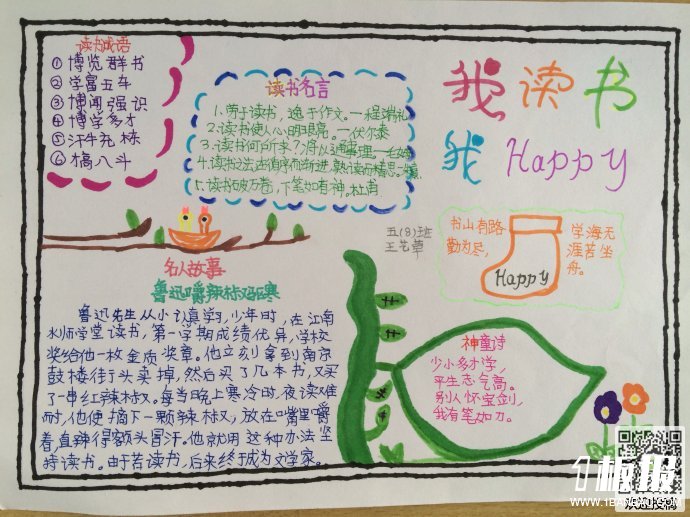 读书成语
① 博览群书
② 学富五车
③ 博闻强识
④ 博学多才
⑤ 汗牛充栋
⑥ 才高八斗
读书名言
1. 劳于读书，逸于作文。—程端礼
2. 读书使人心明眼亮。—伏尔泰
4. 读书之法在循序而渐进，熟读而精思。—朱熹
5. 读书破万卷，下笔如有神。杜甫
我读书
我 Happy
书山有路
勤为径，
Happy
学海无
涯苦坐
舟。
五(8)班
名人故事
鲁迅嚼辣椒驱寒
鲁迅先生从小认真学习，少年时，在江南
水师学堂读书，第一学期成绩优异，学校
奖给他一枚金质奖章。他立刻拿到南京
鼓楼街头卖掉，然后买了几本书，又买
了一串红辣椒。每当晚上寒冷时，夜读难
耐，他便摘下一颗辣椒，放在嘴里嚼
着，直辣得额头冒汗。他就用这种办法坚
持读书。由于苦读书，后来终于成为文学家。
神童诗
少小多才学，
平生志气高。
别人怀宝剑，
我有笔如刀。
1板报
WWW.1BANBAO.COM
欢迎投稿